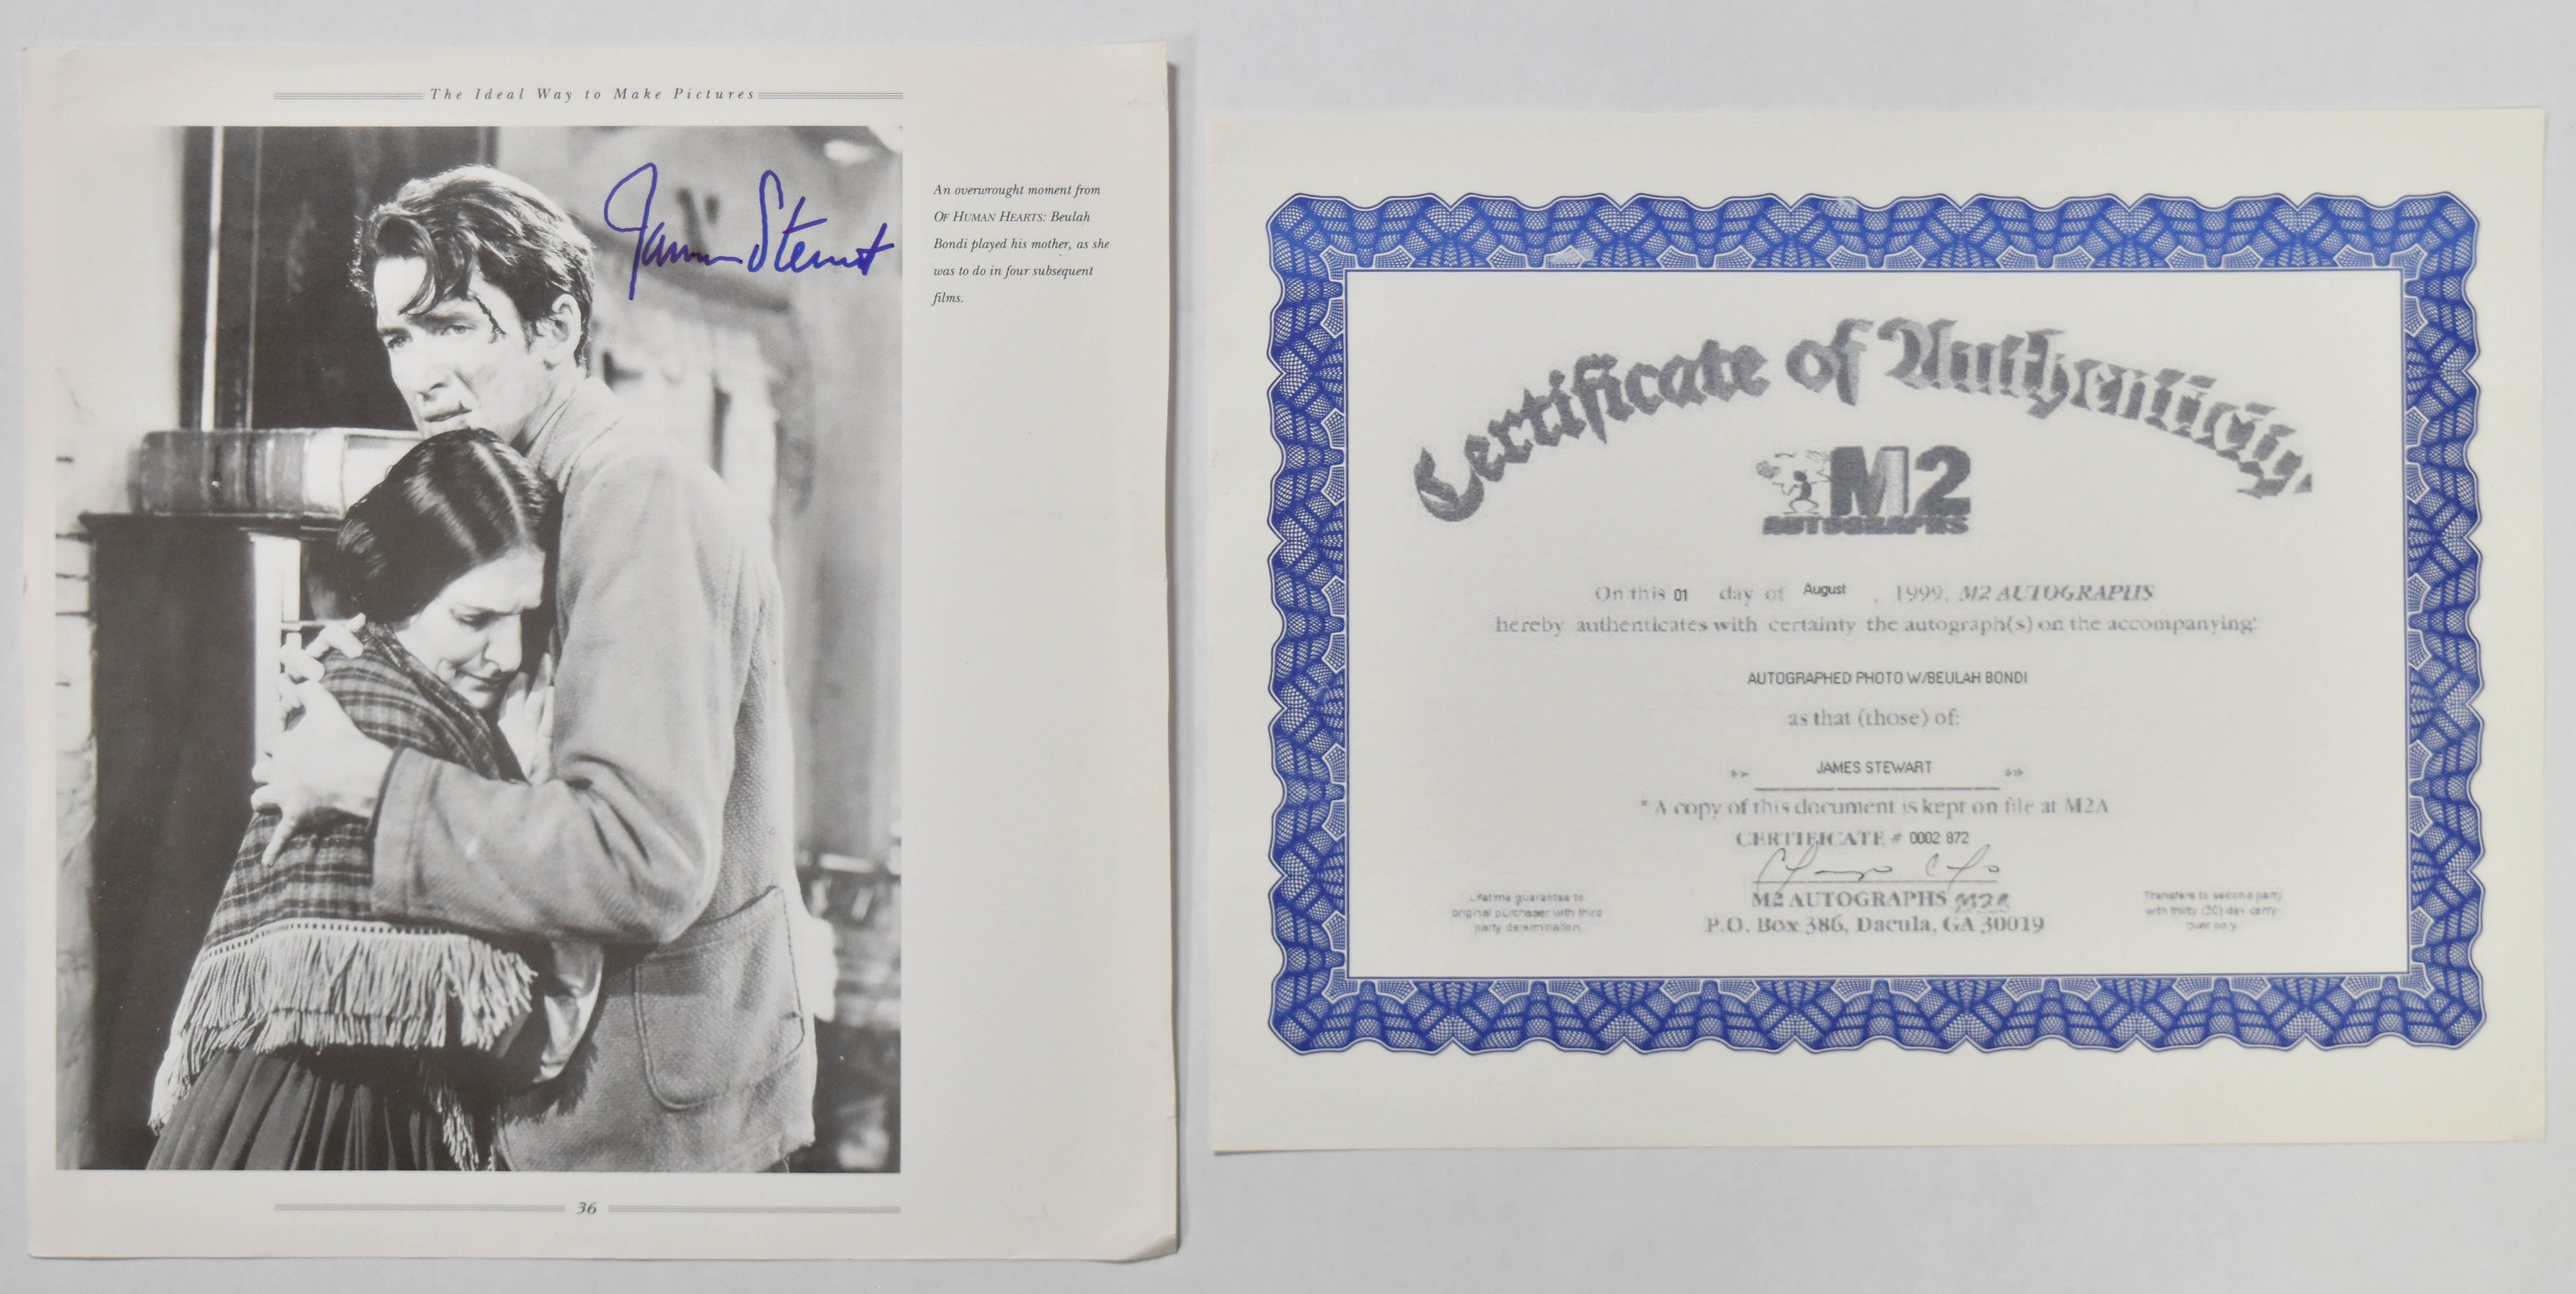 The Ideal Way to Make Pictures
James Stewart
An overwrought moment from
OF HUMAN HEARTS: Beulah
Bondi played his mother, as she
was to do in four subsequent
films.
36
Certificate of Authenticity
M2
AUTOGRAPHS
On this 01 day of August , 1999, M2 AUTOGRAPHS
hereby authenticates with certainty the autograph(s) on the accompanying:
AUTOGRAPHED PHOTO W/BEULAH BONDI
as that (those) of:
JAMES STEWART
* A copy of this document is kept on file at M2A
CERTIFICATE # 0002 872
M2 AUTOGRAPHS M2A
P.O. Box 386, Dacula, GA 30019
Lifetime guarantee to
original purchaser with third
party determination.
Transfers to second party
with thirty (30) day carry-
over only.